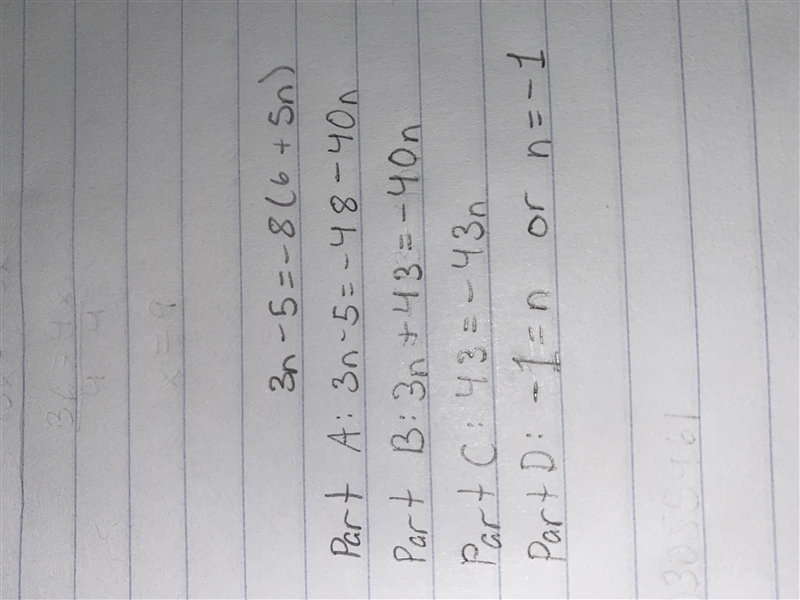 3n-5=-8(6+5n)
Part A: 3n-5=-48-40n
Part B: 3n+43=-40n
Part C: 43=-43n
Part D: -1=n or n=-1